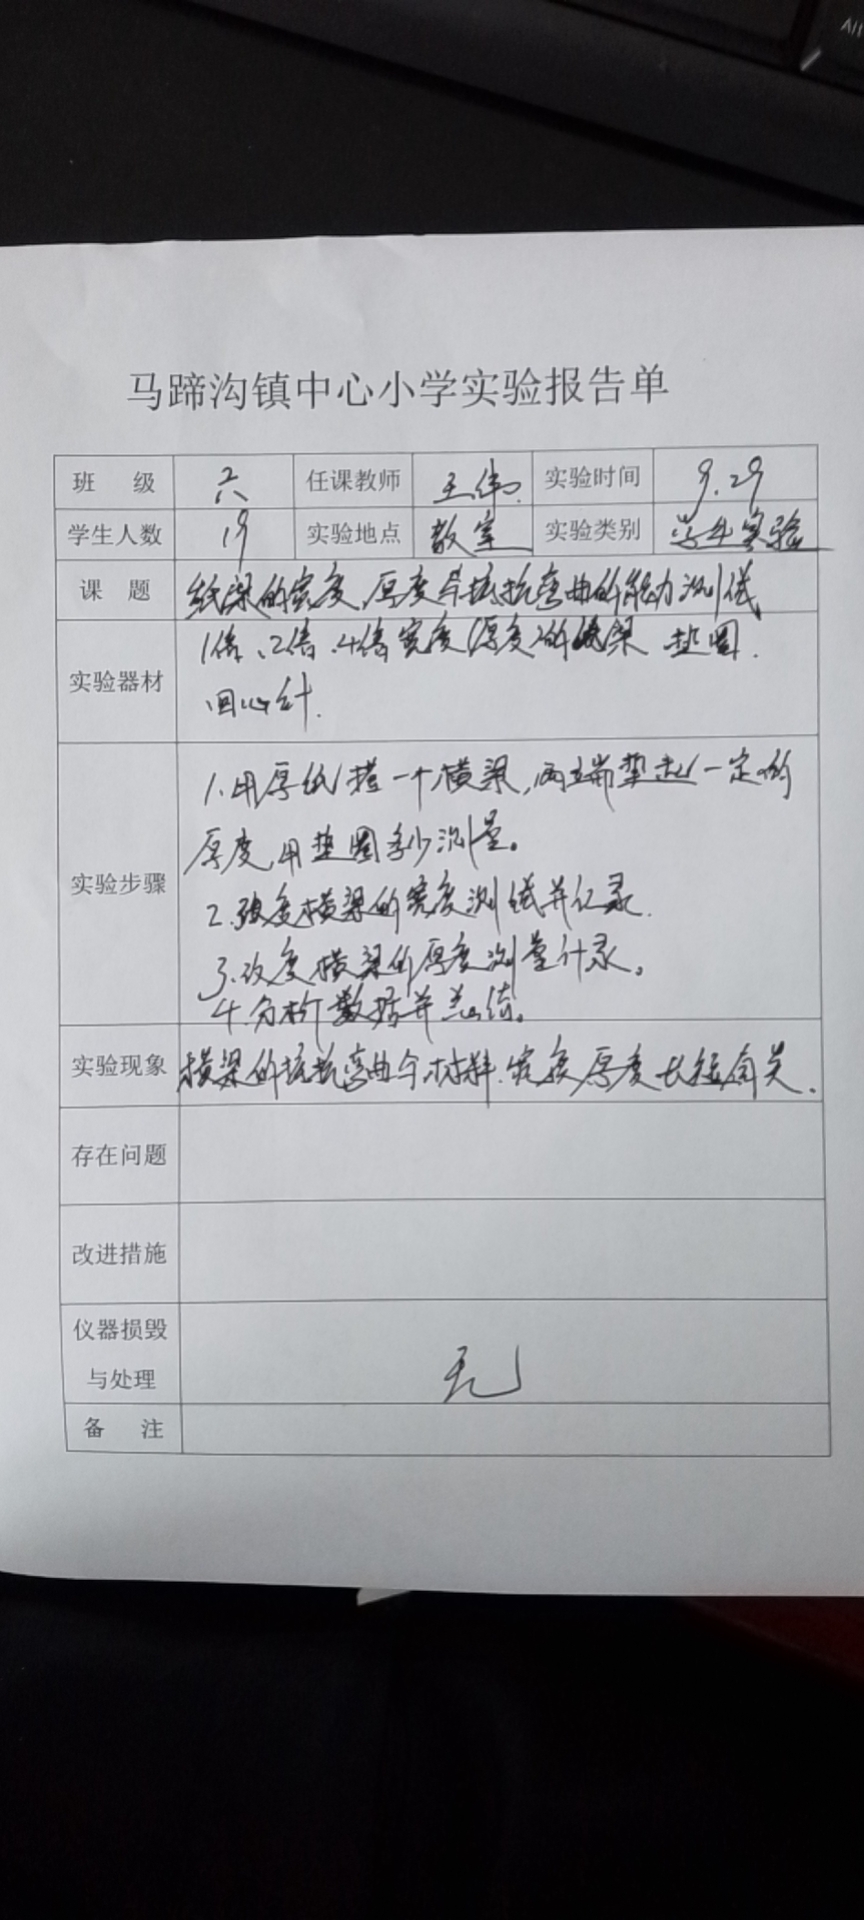 All
马蹄沟镇中心小学实验报告单
班 级 六 任课教师 王伟 实验时间 9.29
学生人数 19 实验地点 教室 实验类别 学生实验
课 题 纸梁的宽度、厚度与抵抗弯曲的能力测试
实验器材 1倍、2倍、4倍宽度(厚度)的纸梁 垫圈.
回心针.
实验步骤 1.用厚纸搭一个横梁,两端垫起一定的
厚度,用垫圈多少测量。
2.改变横梁的宽度测试并记录.
3.改变横梁的厚度测量计录。
4.分析数据并总结。
实验现象 横梁的抵抗弯曲与材料.宽度厚度长短有关.
存在问题
改进措施
仪器损毁
与处理 无
备 注